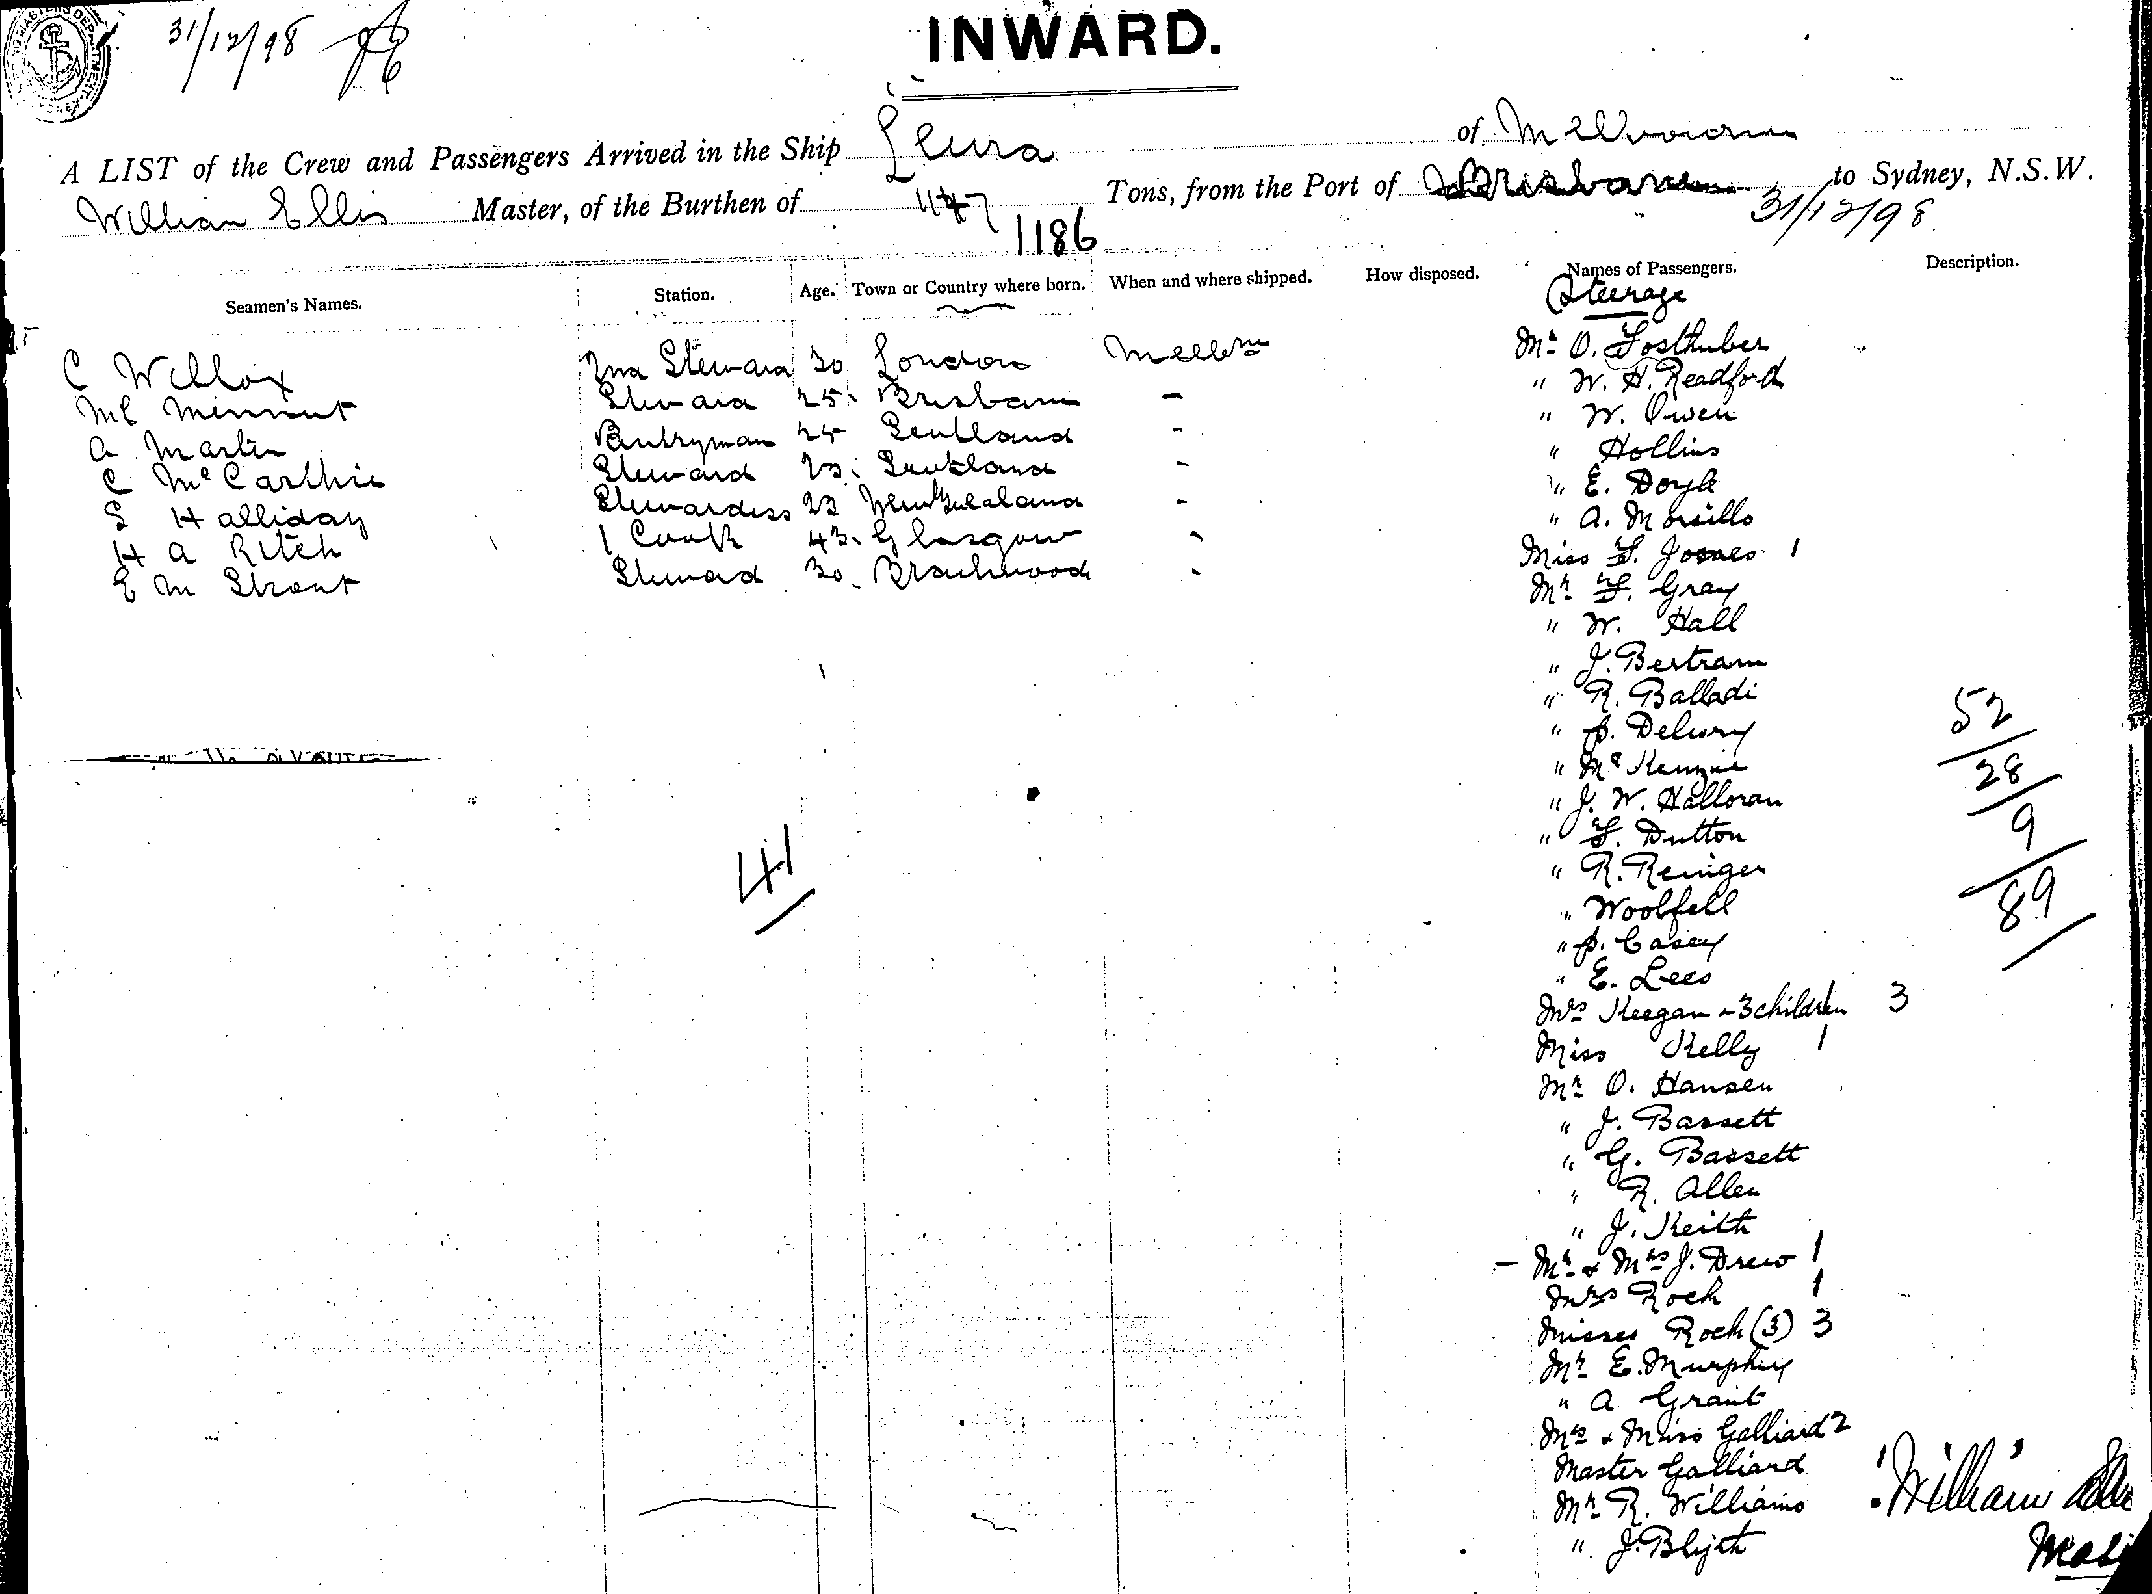 31/12/98
INWARD.
A LIST of the Crew and Passengers Arrived in the Ship Leura of Melbourne
William Ellis Master, of the Burthen of 1186 Tons, from the Port of Brisbane to Sydney, N.S.W.
31/12/98
Seamen's Names. Station. Age. Town or Country where born. When and where shipped. How disposed. Names of Passengers. Description.
Steerage
C Willox 2nd Steward 30 London Melbne
Steward 25 Brisbane -
A Martin Pantryman 25 Scotland -
C McCarthie Steward 23 Scotland -
S Halliday Stewardess 23 New Zealand -
H A Ritch 1 Cook 43 Glasgow -
E M Strout Steward 30 Braidwood -
Mr O. Fosthuber
" W. H. Readford
" W. Owen
" Hollins
" E. Doyle
" A. Morsillo
Miss F. Jones 1
Mr F. Gray
" W. Hall
" J. Bertram
" R. Balladi
" P. Delury
" McKenzie
" J. W. Halloran
" F. Dutton
" R. Reniger
" Woolfell
" P. Casey
" E. Lees
Mrs Keegan & 3 children 1 3
Miss Kelly 1
Mr O. Hansen
" J. Bassett
" G. Bassett
" R. Allen
" J. Keith
- Mr & Mrs J. Drew 1
Mrs Roch 1
Misses Roch (3) 3
Mr E. Murphy
" A Grant
Mrs & Miss Galliard 2
Master Galliard
Mr R. Williams
" J. Blyth
41
52
28
9
89
William